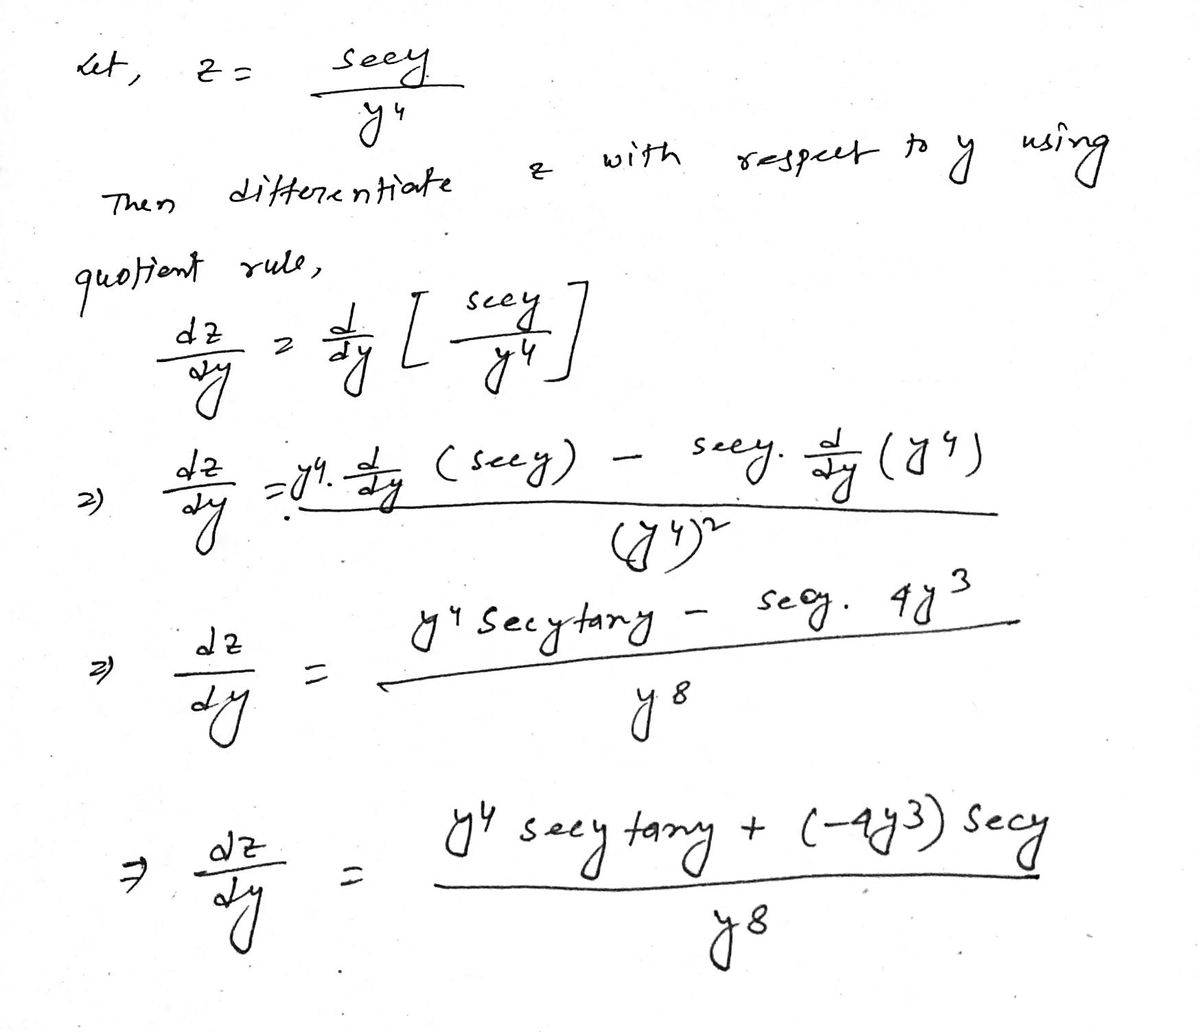 Let, z = secy / y⁴
Then differentiate z with respect to y using
quotient rule,
dz/dy = d/dy [ secy / y⁴ ]
⇒) dz/dy = ( y⁴. d/dy (secy) - secy. d/dy (y⁴) ) / (y⁴)²
⇒) dz/dy = ( y⁴ secy tany - secy. 4y³ ) / y⁸
⇒ dz/dy = ( y⁴ secy tany + (-4y³) secy ) / y⁸